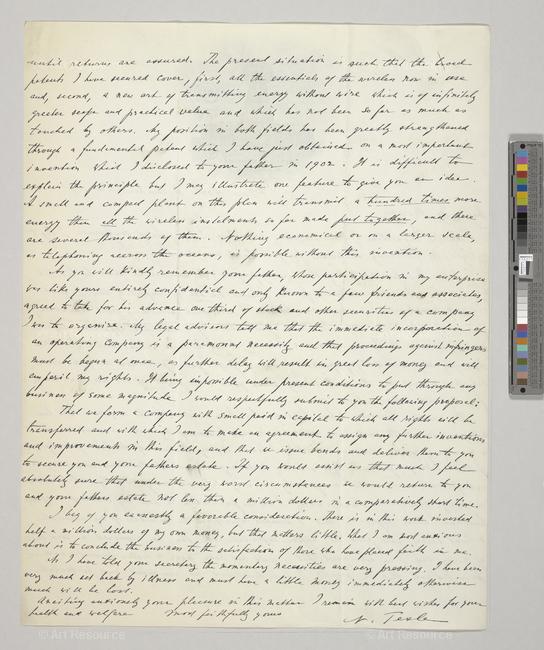 until returns are assured. The present situation is such that the broad
patents I have secured cover, first, all the essentials of the wireless now in use
and, second, a new art of transmitting energy without wire which is of infinitely
greater scope and practical value and which has not been so far as much as
touched by others. My position in both fields has been greatly strengthened
through a fundamental patent which I have just obtained on a most important
invention which I disclosed to your father in 1902. It is difficult to
explain the principle but I may illustrate one feature to give you an idea.
A small and compact plant on this plan will transmit a hundred times more
energy than all the wireless instalments so far made put together, and there
are several thousands of them. Nothing economical or on a larger scale,
as telephoning across the oceans, is possible without this invention.
As you will kindly remember your father, whose participation in my enterprise
was like yours entirely confidential and only known to a few friends and associates,
agreed to take for his advance one third of stock and other securities of a company
I was to organize. My legal advisors tell me that the immediate incorporation of
an operating company is a paramount necessity and that proceedings against infringers
must be begun at once, as further delay will result in great loss of money and will
imperil my rights. It being impossible under present conditions to put through any
business of some magnitude I would respectfully submit to you the following proposal:
That we form a company with small paid in capital to which all rights will be
transferred and with which I am to make an agreement to assign any further inventions
and improvements in this field, and that it issue bonds and deliver them to you
to secure you and your fathers estate. If you would assist us that much I feel
absolutely sure that under the very worst circumstances it would return to you
and your fathers estate not less than a million dollars in a comparatively short time.
I beg of you earnestly a favorable consideration. There is in this work invested
half a million dollars of my own money, but that matters little. What I am most anxious
about is to conclude the business to the satisfaction of those who have placed faith in me.
As I have told your secretary the momentary necessities are very pressing. I have been
very much set back by illness and must have a little money immediately otherwise
much will be lost.
Awaiting anxiously your pleasure in this matter I remain with best wishes for your
health and welfare Most faithfully yours
N. Tesla
© Art Resource © Art Resource